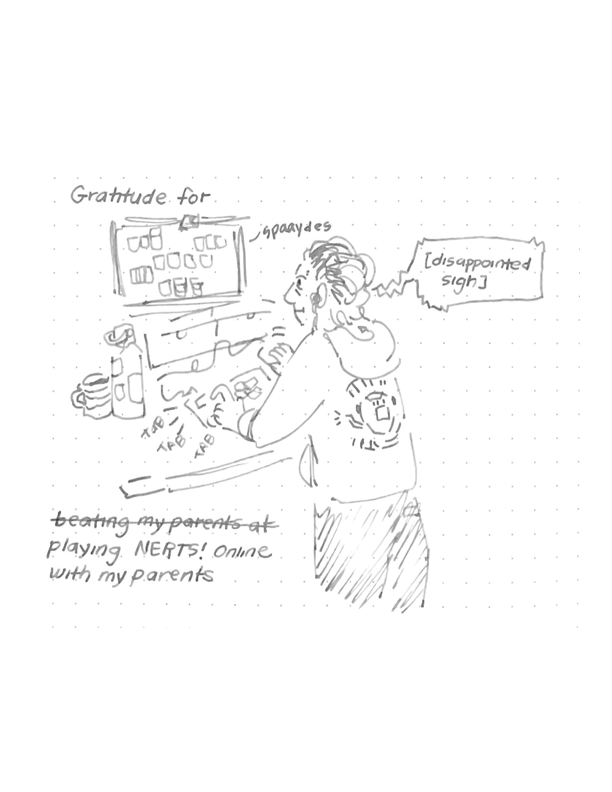 Gratitude for
spaaydes
[disappointed
sigh]
TAB
TAB
TAB
beating my parents at
playing NERTS! Online
with my parents